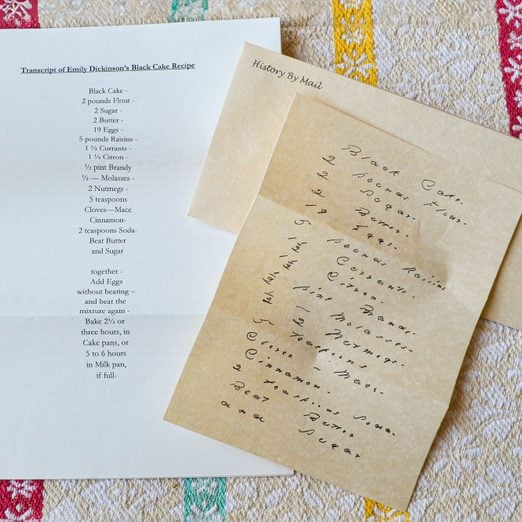 Transcript of Emily Dickinson's Black Cake Recipe
Black Cake -
2 pounds Flour -
2 Sugar -
2 Butter -
19 Eggs -
5 pounds Raisins -
1 ½ Currants -
1 ½ Citron -
½ pint Brandy
½ — Molasses -
2 Nutmegs -
5 teaspoons
Cloves—Mace
Cinnamon-
2 teaspoons Soda-
Beat Butter
and Sugar
together -
Add Eggs
without beating –
and beat the
mixture again -
Bake 2½ or
three hours, in
Cake pans, or
5 to 6 hours
in Milk pan,
if full-
History By Mail
Black Cake.
2 pounds Flour-
2 Sugar-
2 Butter-
19 Eggs-
5 pounds Raisins
1 ½ Currants-
1 ½ Citron-
½ pint Brandy-
½ Molasses-
2 Nutmegs-
5 teaspoons
Cloves - Mace-
Cinnamon-
2 teaspoons Soda-
Beat Butter
and Sugar-